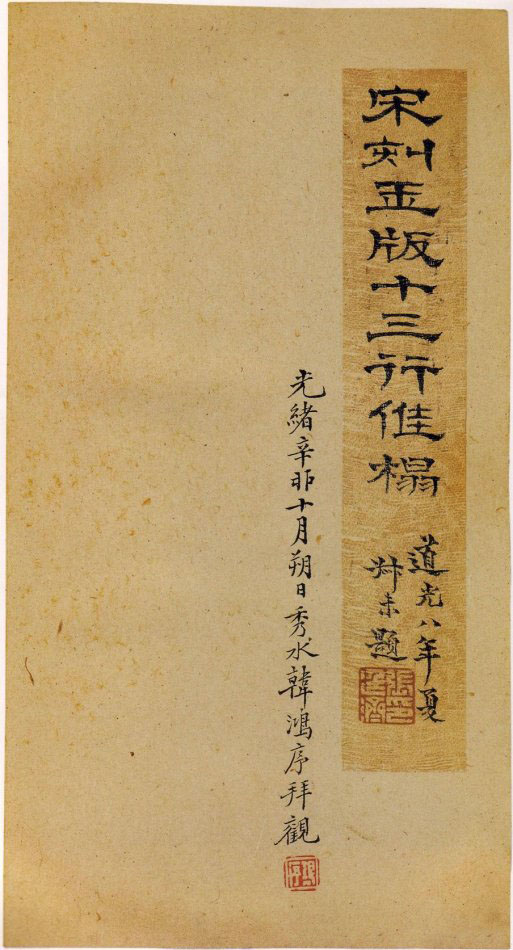 宋刻玉版十三行佳榻
道光八年夏
叔未題
張印廷濟
光緒辛卯十月朔日秀水韓鴻序拜觀